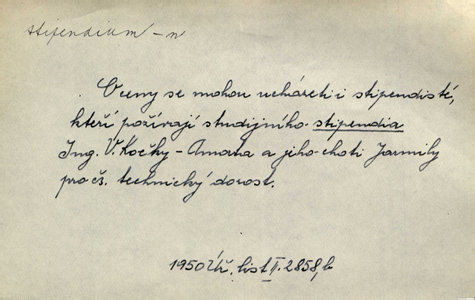 stipendium - n
O ceny se mohou ucházeti i stipendisté,
kteří požívají studijního stipendia
Ing. V. Kočky - Amata a jeho choti Jarmily
pro čs. technický dorost.
1950 Úř. list II. 2858, b